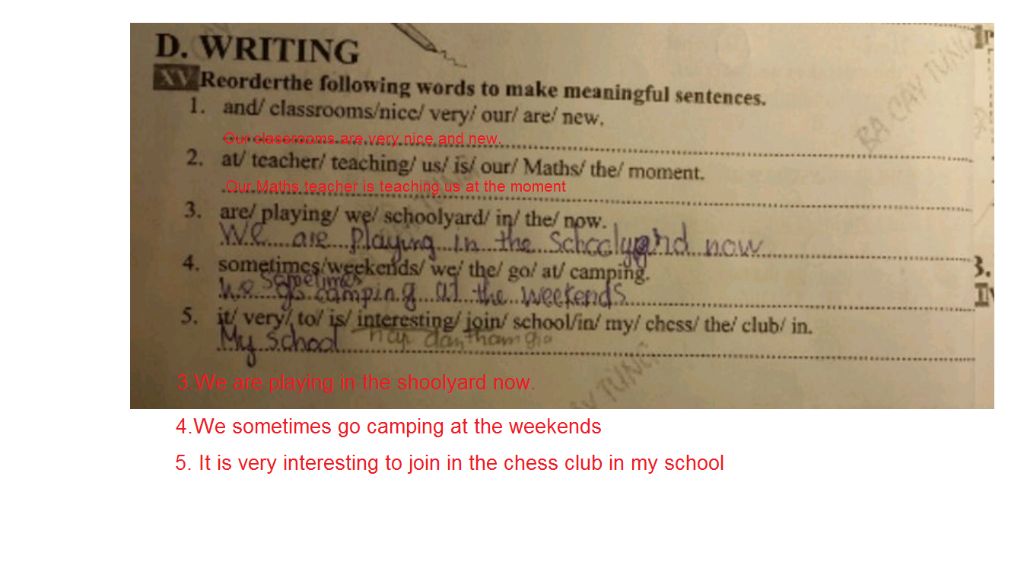 D. WRITING
XV Reorderthe following words to make meaningful sentences.
1. and/ classrooms/nice/ very/ our/ are/ new.
Our classrooms are very nice and new.
2. at/ teacher/ teaching/ us/ is/ our/ Maths/ the/ moment.
Our Maths teacher is teaching us at the moment
3. are/ playing/ we/ schoolyard/ in/ the/ now.
We are playing in the schoolyard now
4. sometimes/weekends/ we/ the/ go/ at/ camping.
sometimes
we go camping at the weekends
5. it/ very/ to/ is/ interesting/ join/ school/in/ my/ chess/ the/ club/ in.
My school hay dan tham gia
3.We are playing in the shoolyard now.
4.We sometimes go camping at the weekends
5. It is very interesting to join in the chess club in my school
BA CAY TUNG
3.